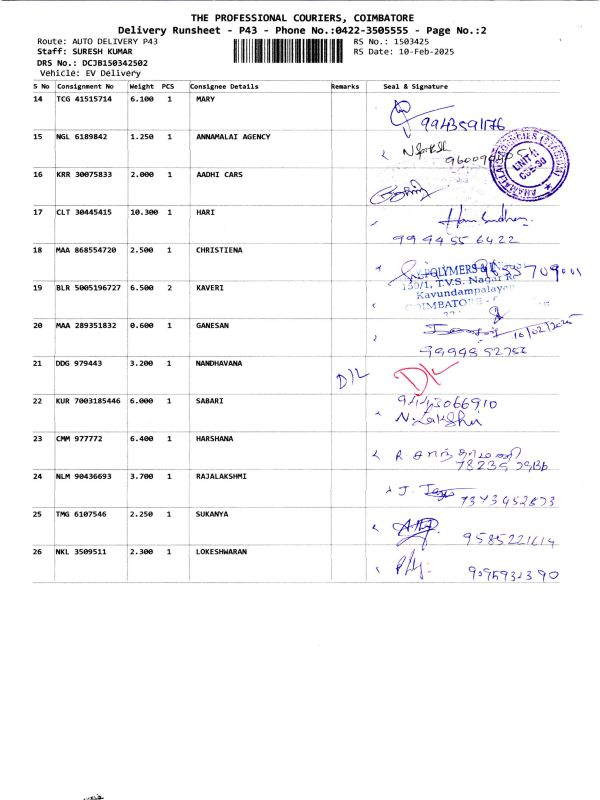 THE PROFESSIONAL COURIERS, COIMBATORE
Delivery Runsheet - P43 - Phone No.:0422-3505555 - Page No.:2
Route: AUTO DELIVERY P43 RS No.: 1503425
Staff: SURESH KUMAR RS Date: 10-Feb-2025
DRS No.: DCJB150342502
Vehicle: EV Delivery
S No Consignment No Weight PCS Consignee Details Remarks Seal & Signature
14 TCG 41515714 6.100 1 MARY
9943591176
15 NGL 6189842 1.250 1 ANNAMALAI AGENCY
UNIT-II
CBE-30
16 KRR 30075833 2.000 1 AADHI CARS
17 CLT 30445415 10.300 1 HARI
9994556422
18 MAA 868554720 2.500 1 CHRISTIENA
POLYMERS &
19 BLR 5005196727 6.500 2 KAVERI
130/1, T.V.S. Nagar
Kavundampalayam
COIMBATORE -
20 MAA 289351832 0.600 1 GANESAN
10/02/2025
21 DDG 979443 3.200 1 NANDHAVANA D/L D/L
22 KUR 7003185446 6.000 1 SABARI
9443066910
N. Lakshmi
23 CMM 977772 6.400 1 HARSHANA
24 NLM 90436693 3.700 1 RAJALAKSHMI
7373452873
25 TMG 6107546 2.250 1 SUKANYA
9585221614
26 NKL 3509511 2.300 1 LOKESHWARAN